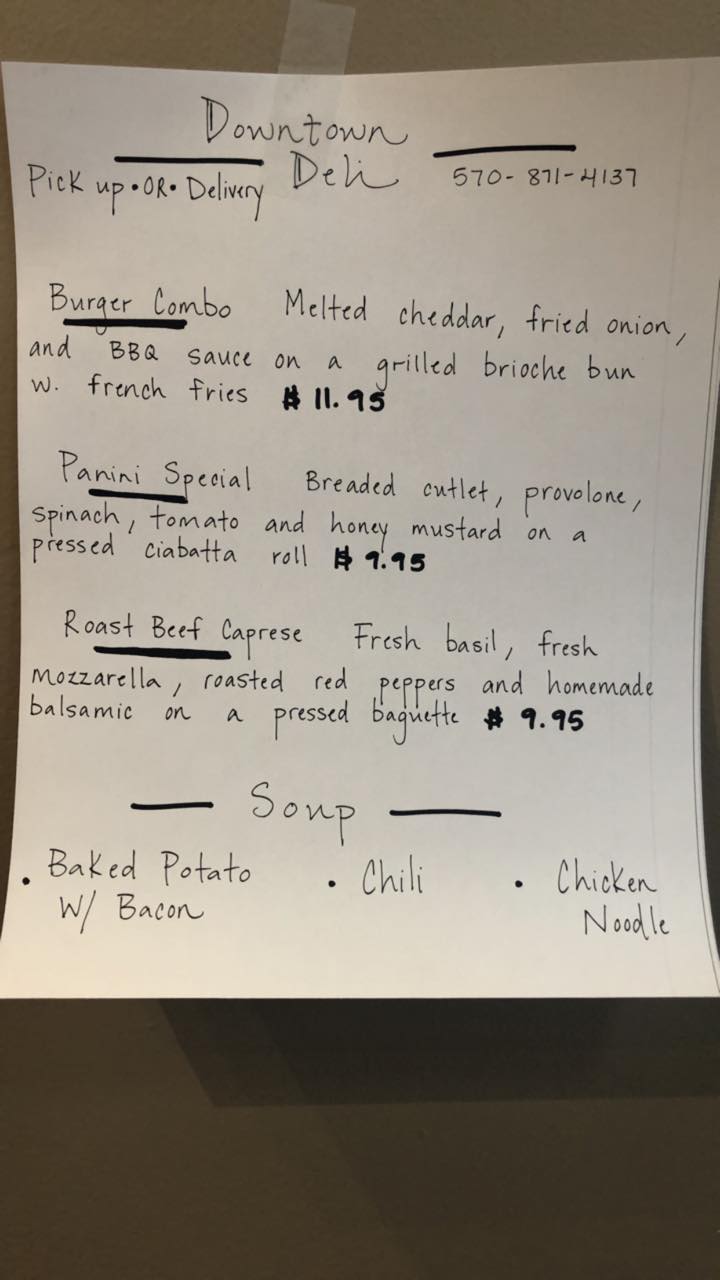 Downtown
Deli
Pick up • OR • Delivery
570-871-4137
Burger Combo Melted cheddar, fried onion,
and BBQ sauce on a grilled brioche bun
w. french fries $11.95
Panini Special Breaded cutlet, provolone,
spinach, tomato and honey mustard on a
pressed ciabatta roll $9.95
Roast Beef Caprese Fresh basil, fresh
mozzarella, roasted red peppers and homemade
balsamic on a pressed baguette $9.95
Soup
• Baked Potato
W/ Bacon
• Chili
• Chicken
Noodle